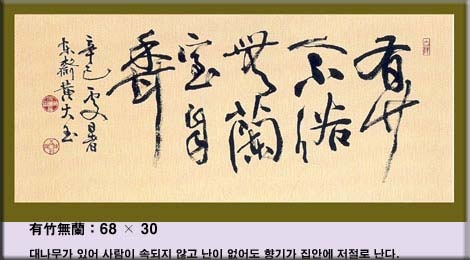 有竹
不俗
無蘭
室自
香
辛巳處暑
黃大玉
有竹無蘭 : 68 × 30
대나무가 있어 사람이 속되지 않고 난이 없어도 향기가 집안에 저절로 난다.